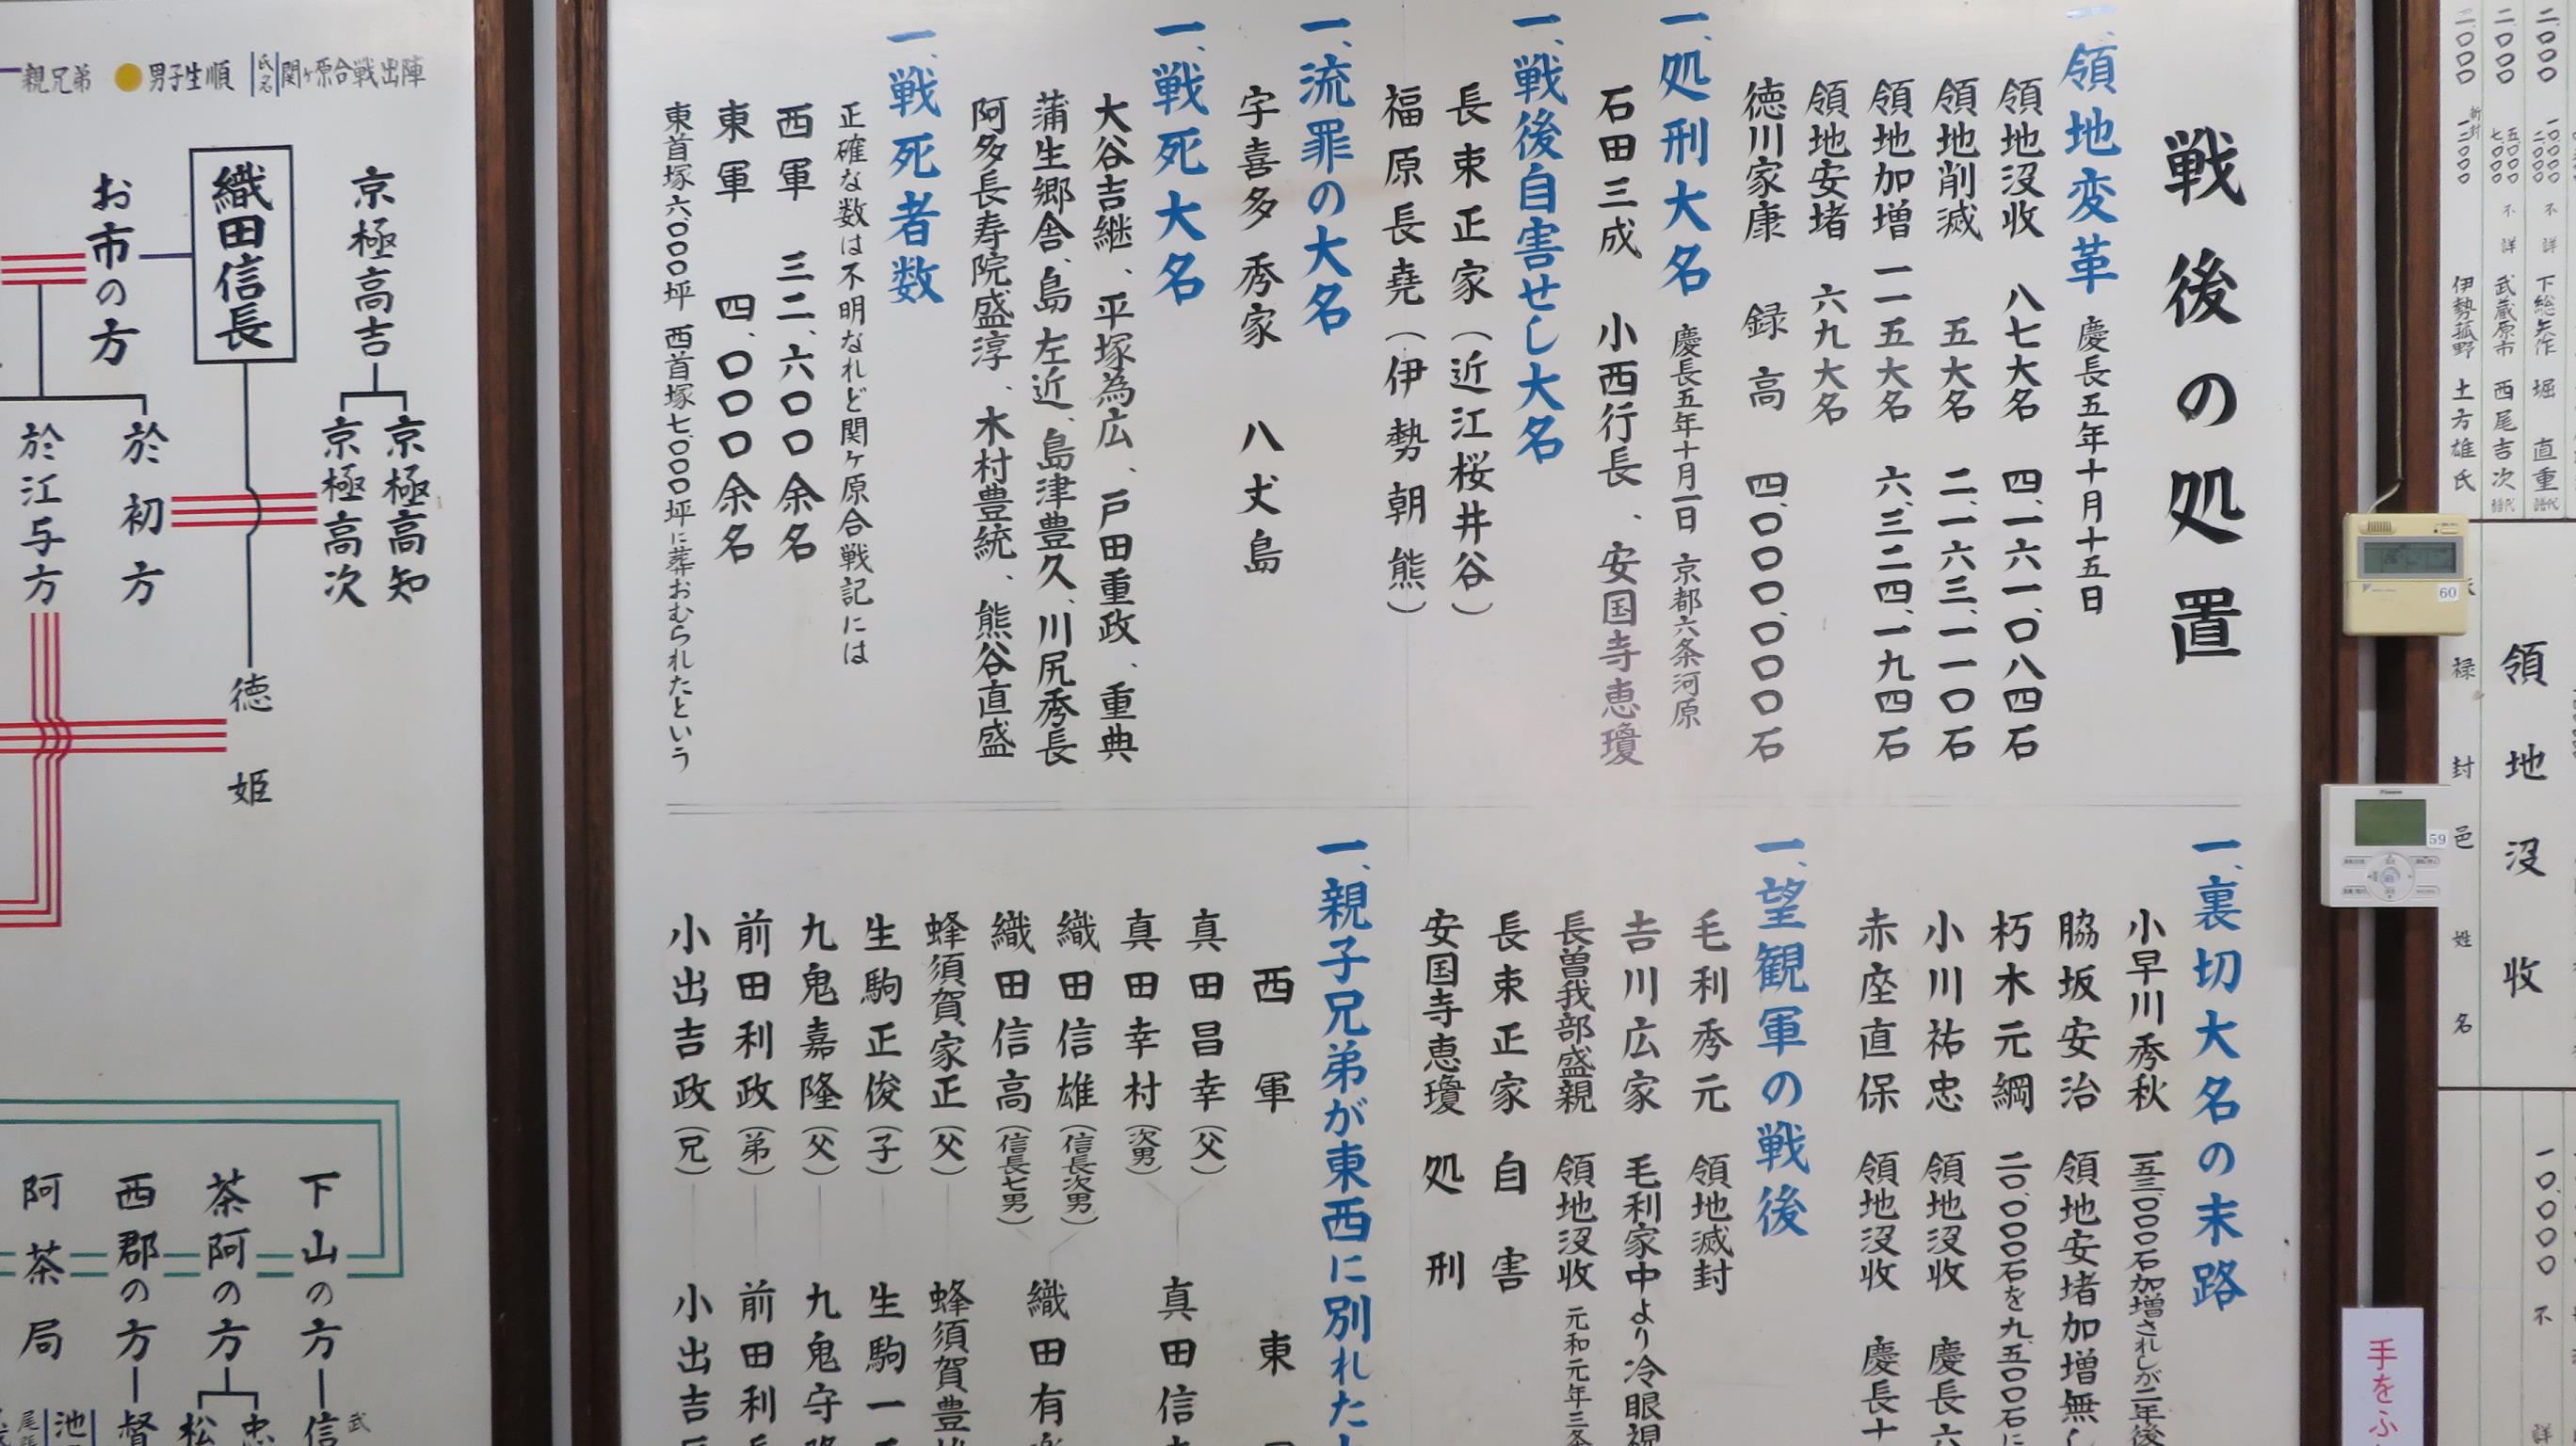 二、〇〇〇
二、〇〇〇
二、〇〇〇
新封 一二、〇〇〇
不詳
不詳
下総矢作 堀 直重
武蔵原市 西尾吉次
伊勢菰野 土方雄氏
領地没収
禄 封 邑 姓 名
一〇、〇〇〇 不
詳
60
59
手をふ
戦後の処置
一、領地変革 慶長五年十月十五日
領地没収 八七大名 四、一六一、〇八四石
領地削減 五大名 二、一六三、一一〇石
領地加増 一一五大名 六、三二四、一九四石
領地安堵 六九大名
徳川家康 録高 四、〇〇〇、〇〇〇石
一、処刑大名 慶長五年十月一日 京都六条河原
石田三成 小西行長、安国寺恵瓊
一、戦後自害せし大名
長束正家(近江桜井谷)
福原長堯(伊勢朝熊)
一、流罪の大名
宇喜多秀家 八丈島
一、戦死大名
大谷吉継、平塚為広、戸田重政、重典
蒲生郷舎、島左近、島津豊久、川尻秀長
阿多長寿院盛淳、木村豊統、熊谷直盛
一、戦死者数
正確な数は不明なれど関ヶ原合戦記には
西軍 三二、六〇〇余名
東軍 四、〇〇〇余名
東首塚六〇〇〇坪 西首塚七、〇〇〇坪に葬おむられたという
一、裏切大名の末路
小早川秀秋 一五三、〇〇〇石加増されしが二年後
脇坂安治 領地安堵加増無し
朽木元綱 二〇、〇〇〇石を九、五〇〇石に
小川祐忠 領地没収 慶長六
赤座直保 領地没収 慶長十
一、望観軍の戦後
毛利秀元 領地減封
吉川広家 毛利家中より冷眼視
長曽我部盛親 領地没収 元和元年三条
長束正家 自害
安国寺恵瓊 処刑
一、親子兄弟が東西に別れた
西軍 東
真田昌幸(父)
真田幸村(次男)
真田信
織田信雄(信長次男)
織田信高(信長七男)
織田有
蜂須賀家正(父) 蜂須賀豊
生駒正俊(子) 生駒一
九鬼嘉隆(父) 九鬼守
前田利政(弟) 前田利
小出吉政(兄) 小出吉
親兄弟 男子生順 氏名 関ヶ原合戦出陣
京極高吉
京極高知
京極高次
織田信長
徳姫
お市の方
於初方
於江与方
下山の方
信
武
茶阿の方
忠
松
西郡の方
督
池
尾張
阿茶局